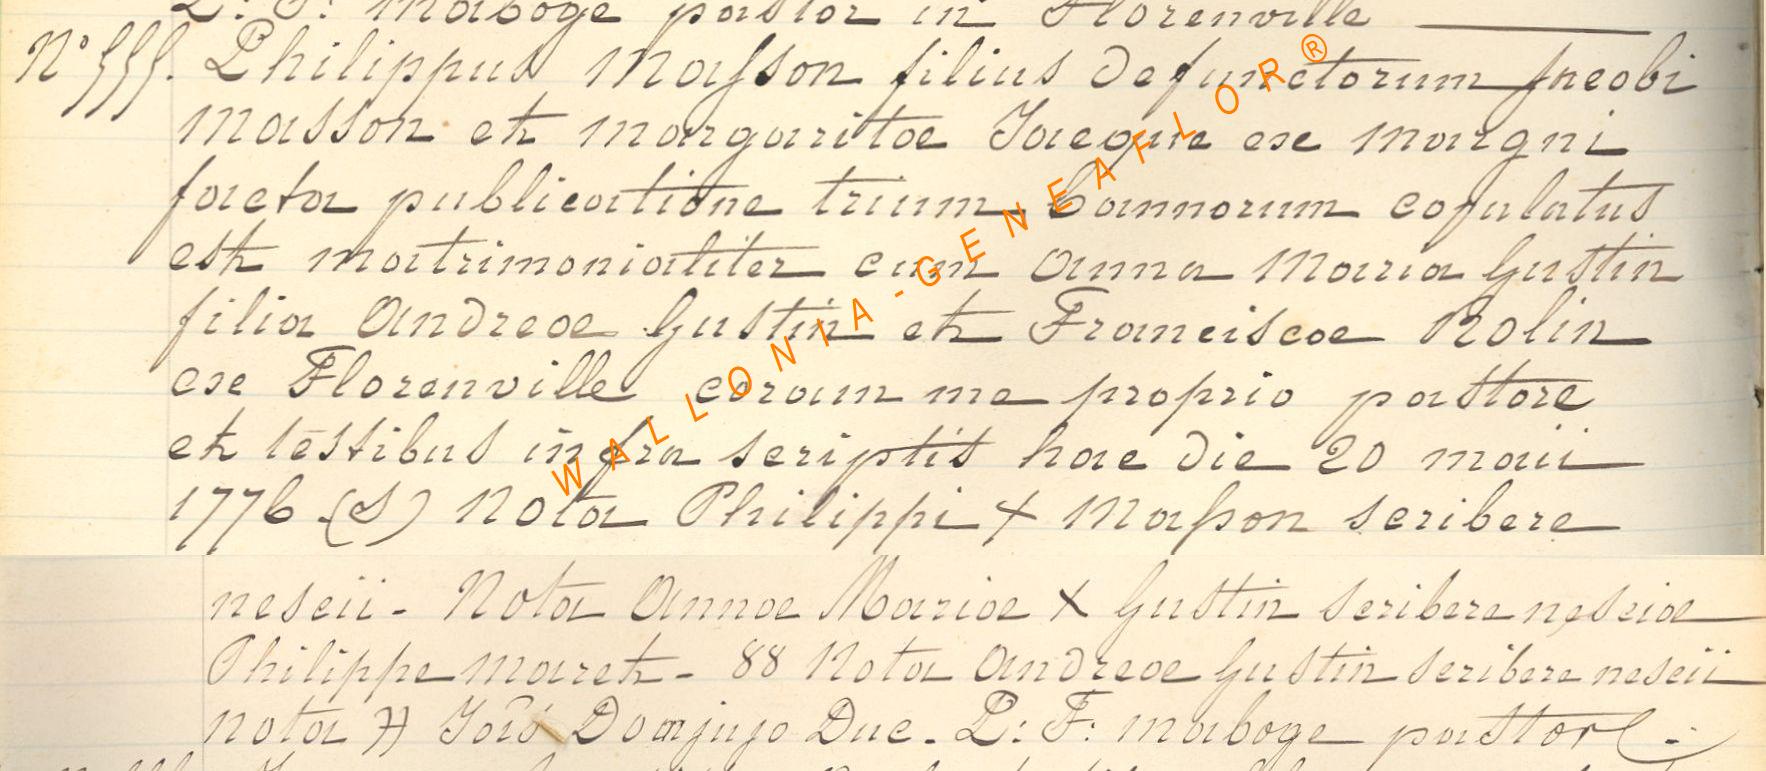 L: F: Maboge pastor in Florenville
N° 555. Philippus Masson filius defunctorum Jacobi
masson et margaritae Jacque ex margni
facta publicatione trium bannorum copulatus
est matrimonialiter cum anna Maria Gustin
filia Andreae Gustin et Franciscae Rolin
ex Florenville coram me proprio pastore
et testibus infra scriptis hac die 20 maii
1776 (S) Nota Philippi X Masson scribere
nescii - Nota Annae Mariae X Gustin scribere nesciae
Philippe Maret - 88 Nota Andreae Gustin scribere nescii
nota H Duc. L: F: maboge pastor.
WALLONIA-GENEAFLOR®